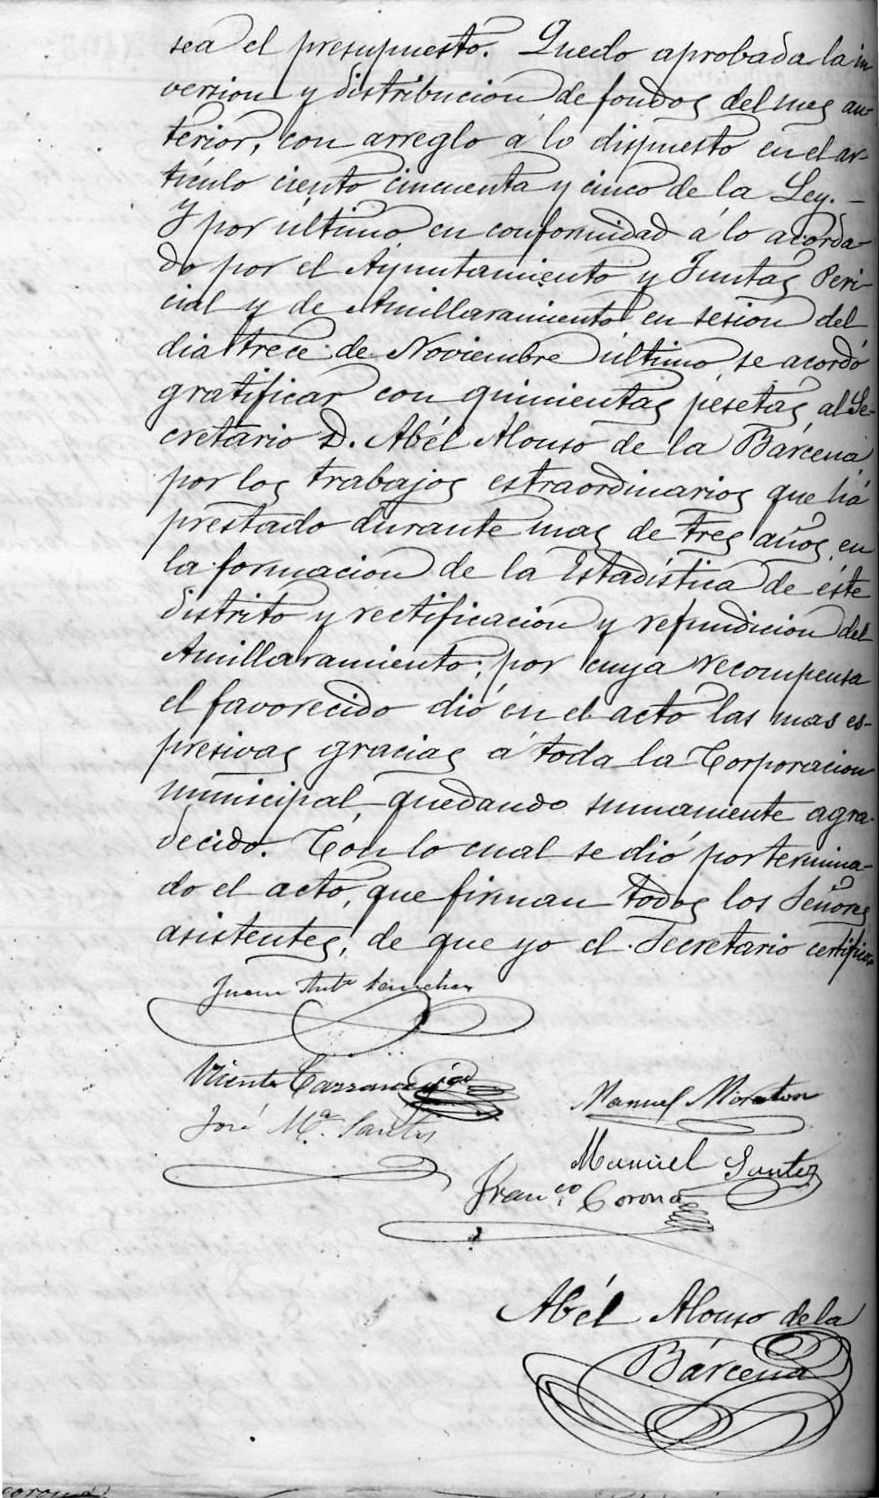 sea el presupuesto. Quedo aprobada la in
version y distribucion de fondos del mes an-
terior, con arreglo á lo dispuesto en el ar-
tículo ciento cincuenta y cinco de la Ley. —
Y por último en conformidad á lo acorda-
do por el Ayuntamiento y Juntas Peri-
cial y de Amillaramiento en sesion del
dia trece de Noviembre último, se acordó
gratificar con quinientas pesetas al Se-
cretario D. Abél Alonso de la Bárcena
por los trabajos estraordinarios que há
prestado durante mas de tres años en
la formacion de la Estadística de éste
distrito y rectificacion y refundicion del
Amillaramiento; por cuya recompensa
el favorecido dió en el acto las mas es-
presivas gracias á toda la Corporacion
municipal quedando sumamente agra-
decido. Con lo cual se dió por termina-
do el acto, que firman todos los Señores
asistentes, de que yo el Secretario certifico.
Juan Antº
Vicente
Manuel Moraton
José Mª. Santos
Manuel Santos
Franco Corona
Abél Alonso de la
Bárcena
corona